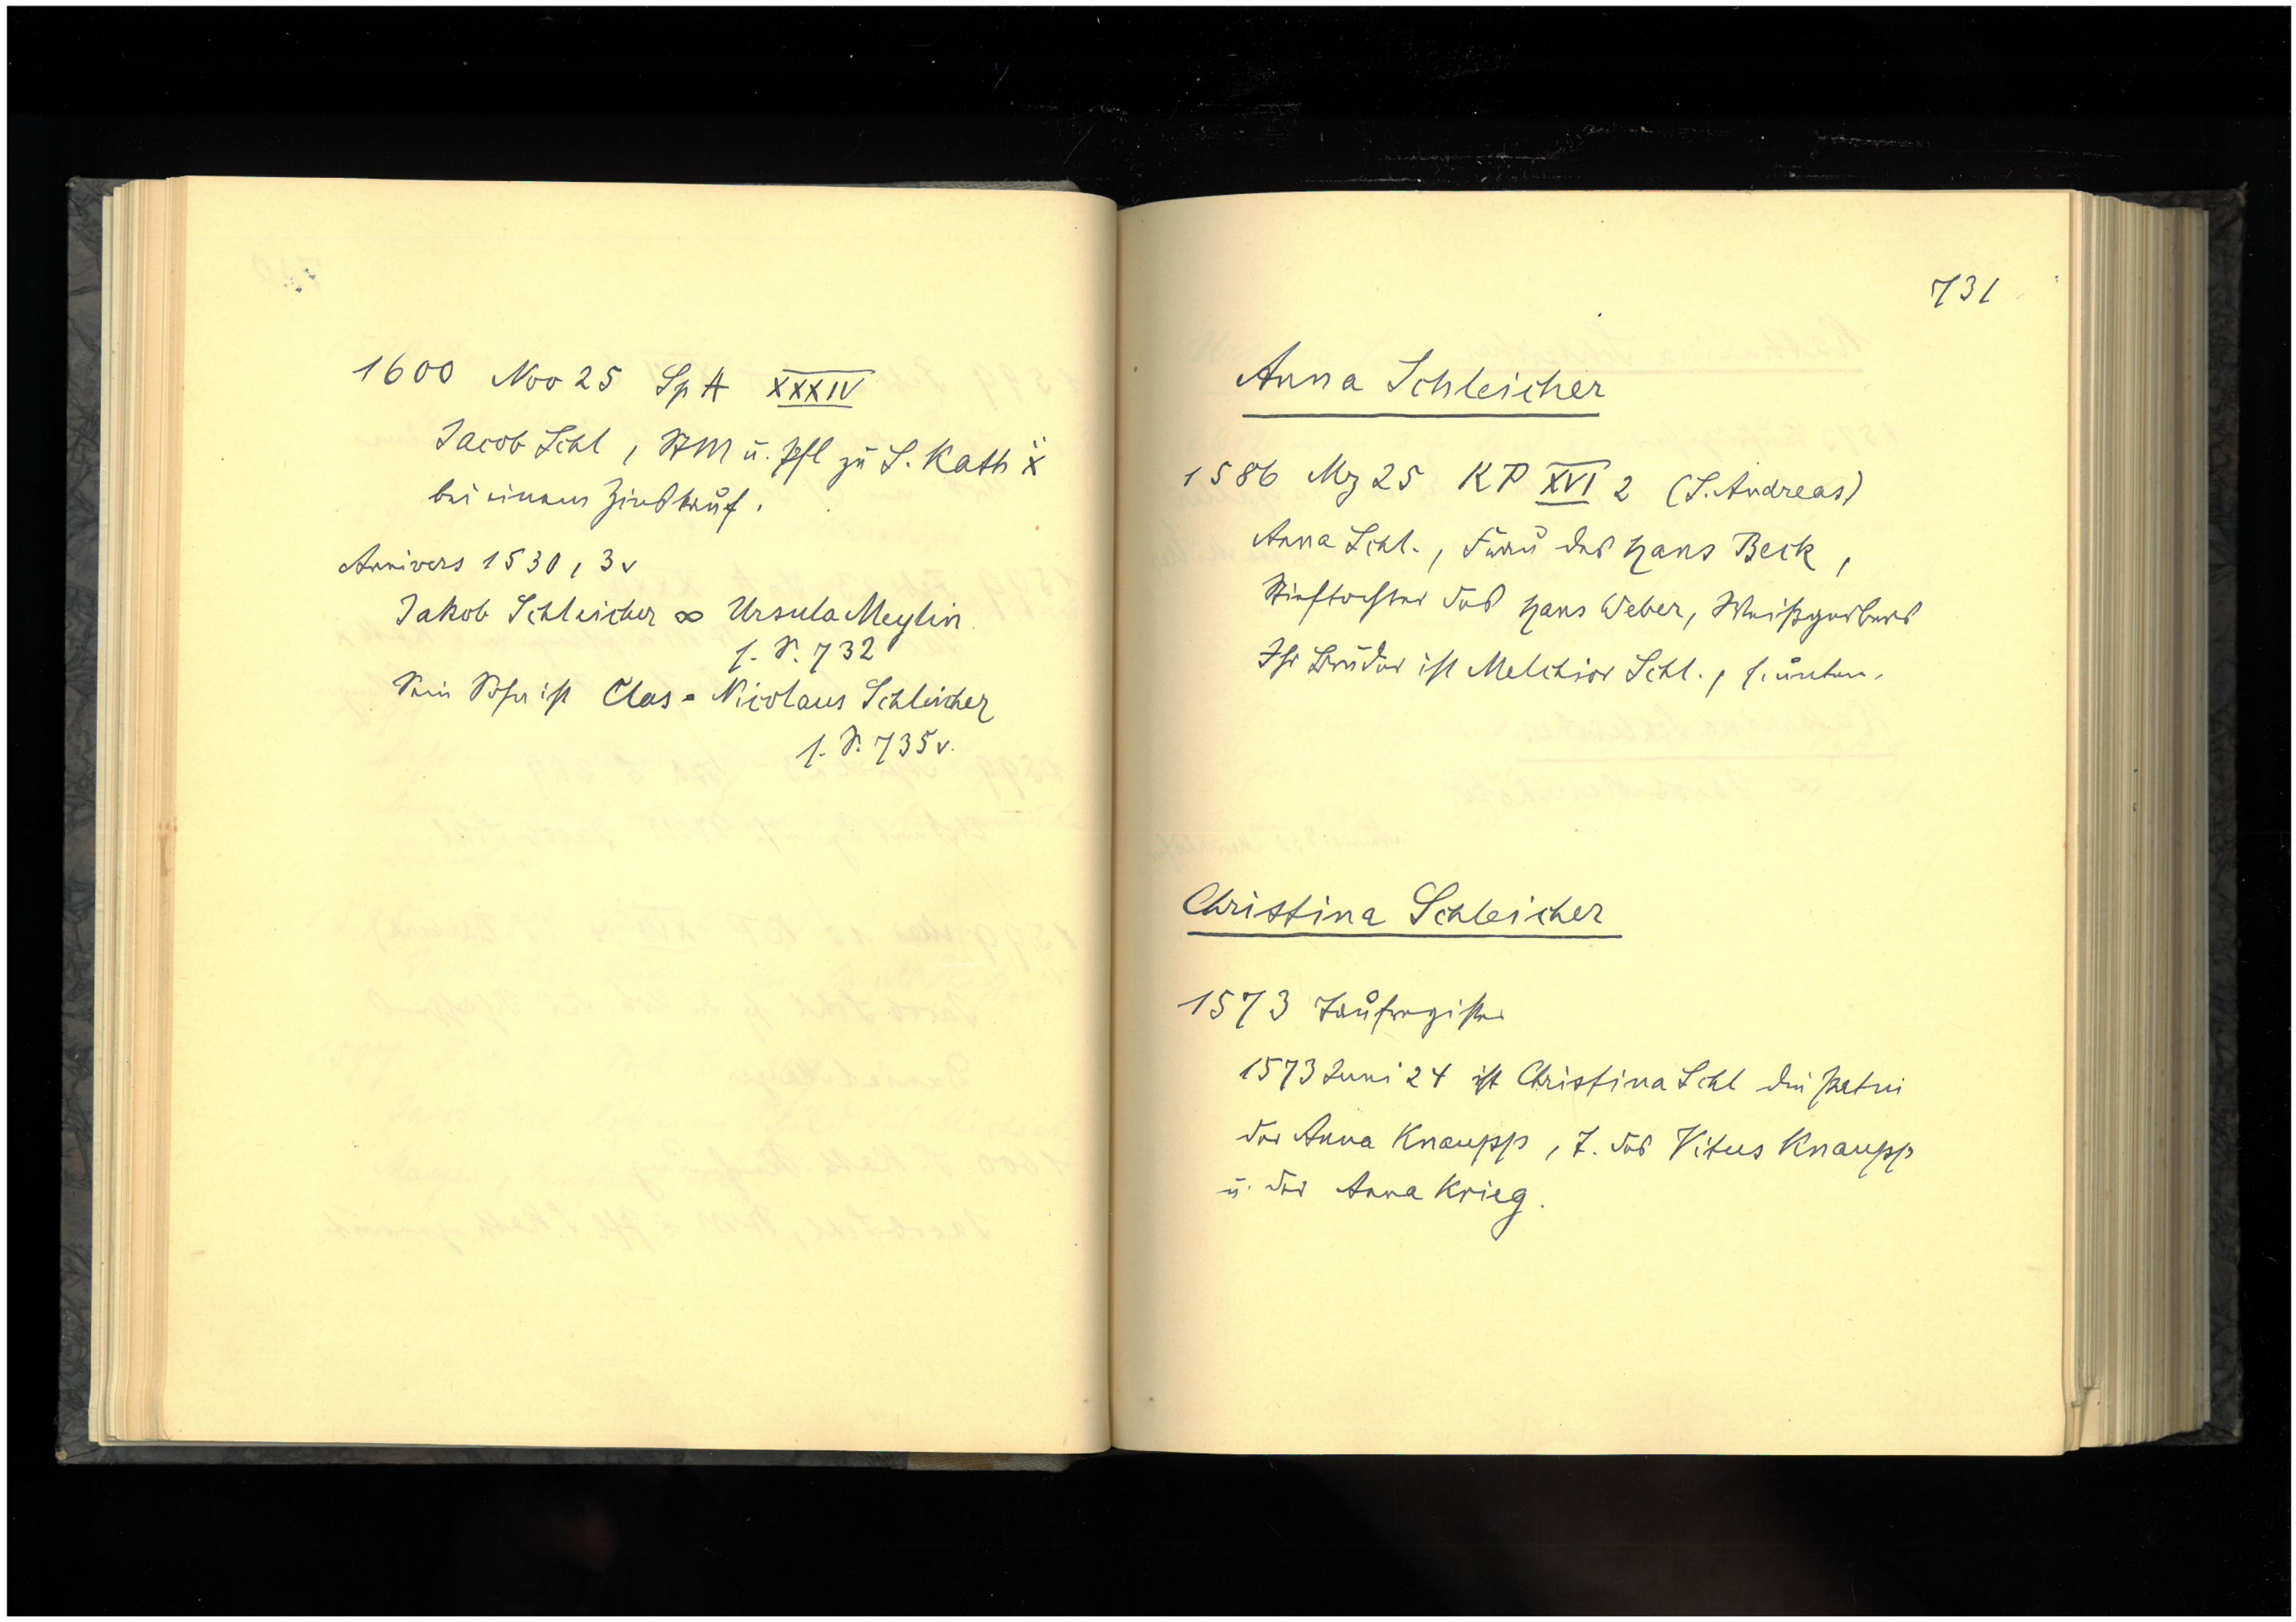 1600 Nov 25 Sp A XXXIV
Jacob Schl, StM u. Pfl zu S. Kath ẍ
bei einem Zinskauf.
Annivers 1530, 3v
Jakob Schleicher ∞ Ursula Meylin
s. S. 732
Sein Sohn ist Clas = Nicolaus Schleicher
s. S. 735v.
731
Anna Schleicher
1586 Mz 25 KP XVI 2 (S. Andreas)
Anna Schl., Frau des Hans Beck,
Stieftochter des Hans Weber, Weißgerbers
Ihr Bruder ist Melchior Schl., s. unten.
Christina Schleicher
1573 Taufregister
1573 Juni 24 ist Christina Schl die Patin
der Anna Knaupp, T. des Vitus Knaupp
u. der Anna Krieg.